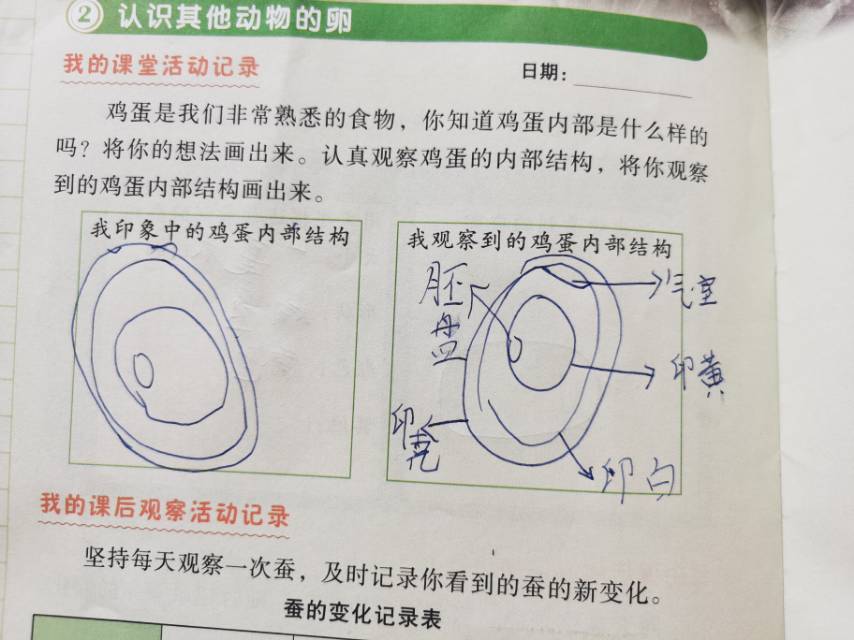 2 认识其他动物的卵
我的课堂活动记录
日期：
鸡蛋是我们非常熟悉的食物，你知道鸡蛋内部是什么样的
吗？将你的想法画出来。认真观察鸡蛋的内部结构，将你观察
到的鸡蛋内部结构画出来。
我印象中的鸡蛋内部结构
我观察到的鸡蛋内部结构
胚盘
气室
卵黄
卵壳
卵白
我的课后观察活动记录
坚持每天观察一次蚕，及时记录你看到的蚕的新变化。
蚕的变化记录表